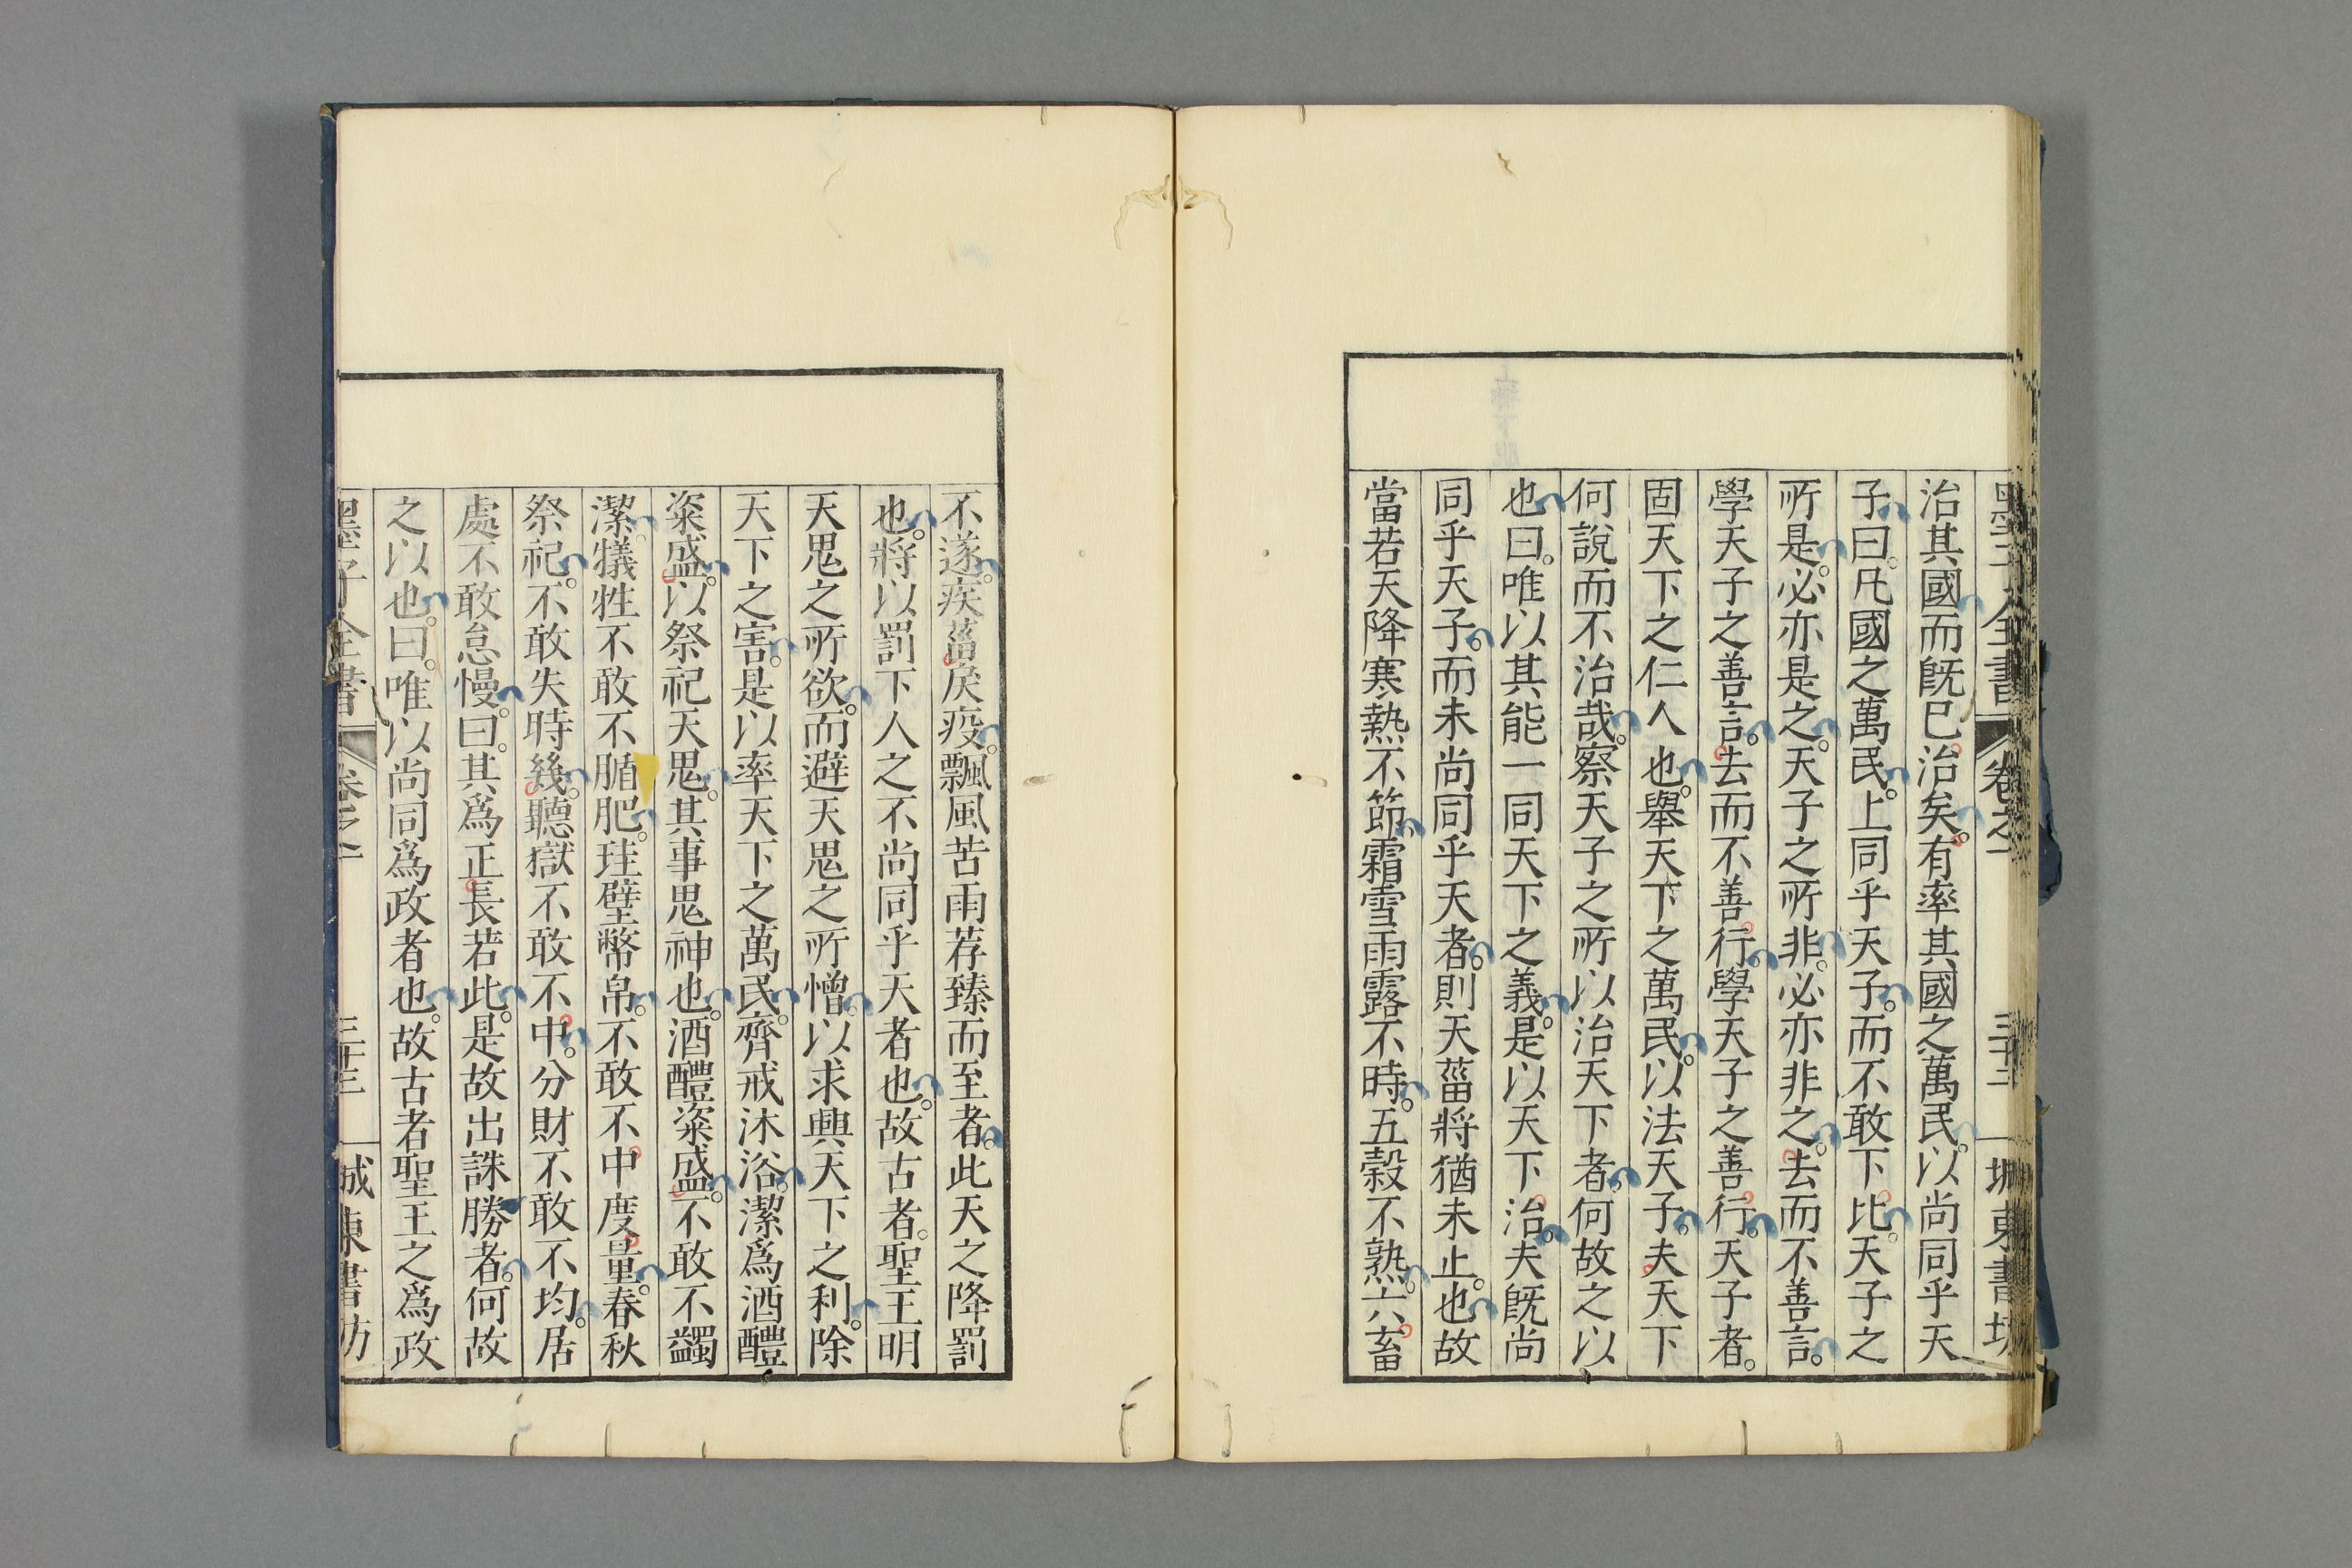 墨子全書 卷之二 三十二 城東書坊
治其國而既已治矣。有率其國之萬民。以尚同乎天
子曰。凡國之萬民。上同乎天子。而不敢下比。天子之
所是。必亦是之。天子之所非。必亦非之。去而不善言。
學天子之善言。去而不善行。學天子之善行。天子者。
固天下之仁人也。舉天下之萬民。以法天子。夫天下
何說而不治哉。察天子之所以治天下者。何故之以
也曰。唯以其能一同天下之義。是以天下治。夫既尚
同乎天子。而未尚同乎天者。則天菑將猶未止。也故
當若天降寒熱不節。霜雪雨露不時。五穀不熟。六畜
不遂。疾菑戾疫。飄風苦雨荐臻而至者。此天之降罰
也。將以罰下人之不尚同乎天者也。故古者。聖王明
天鬼之所欲。而避天鬼之所憎。以求興天下之利。除
天下之害。是以率天下之萬民。齊戒沐浴。潔爲酒醴
粢盛。以祭祀天鬼。其事鬼神也。酒醴粢盛。不敢不蠲
潔。犧牲不敢不腯肥。珪璧幣帛。不敢不中度量。春秋
祭祀。不敢失時幾。聽獄不敢不中。分財不敢不均。居
處不敢怠慢。曰。其爲正長若此。是故出誅勝者。何故
之以也。曰。唯以尚同爲政者也。故古者聖王之爲政
墨子全書 卷之二 三十三 城東書坊